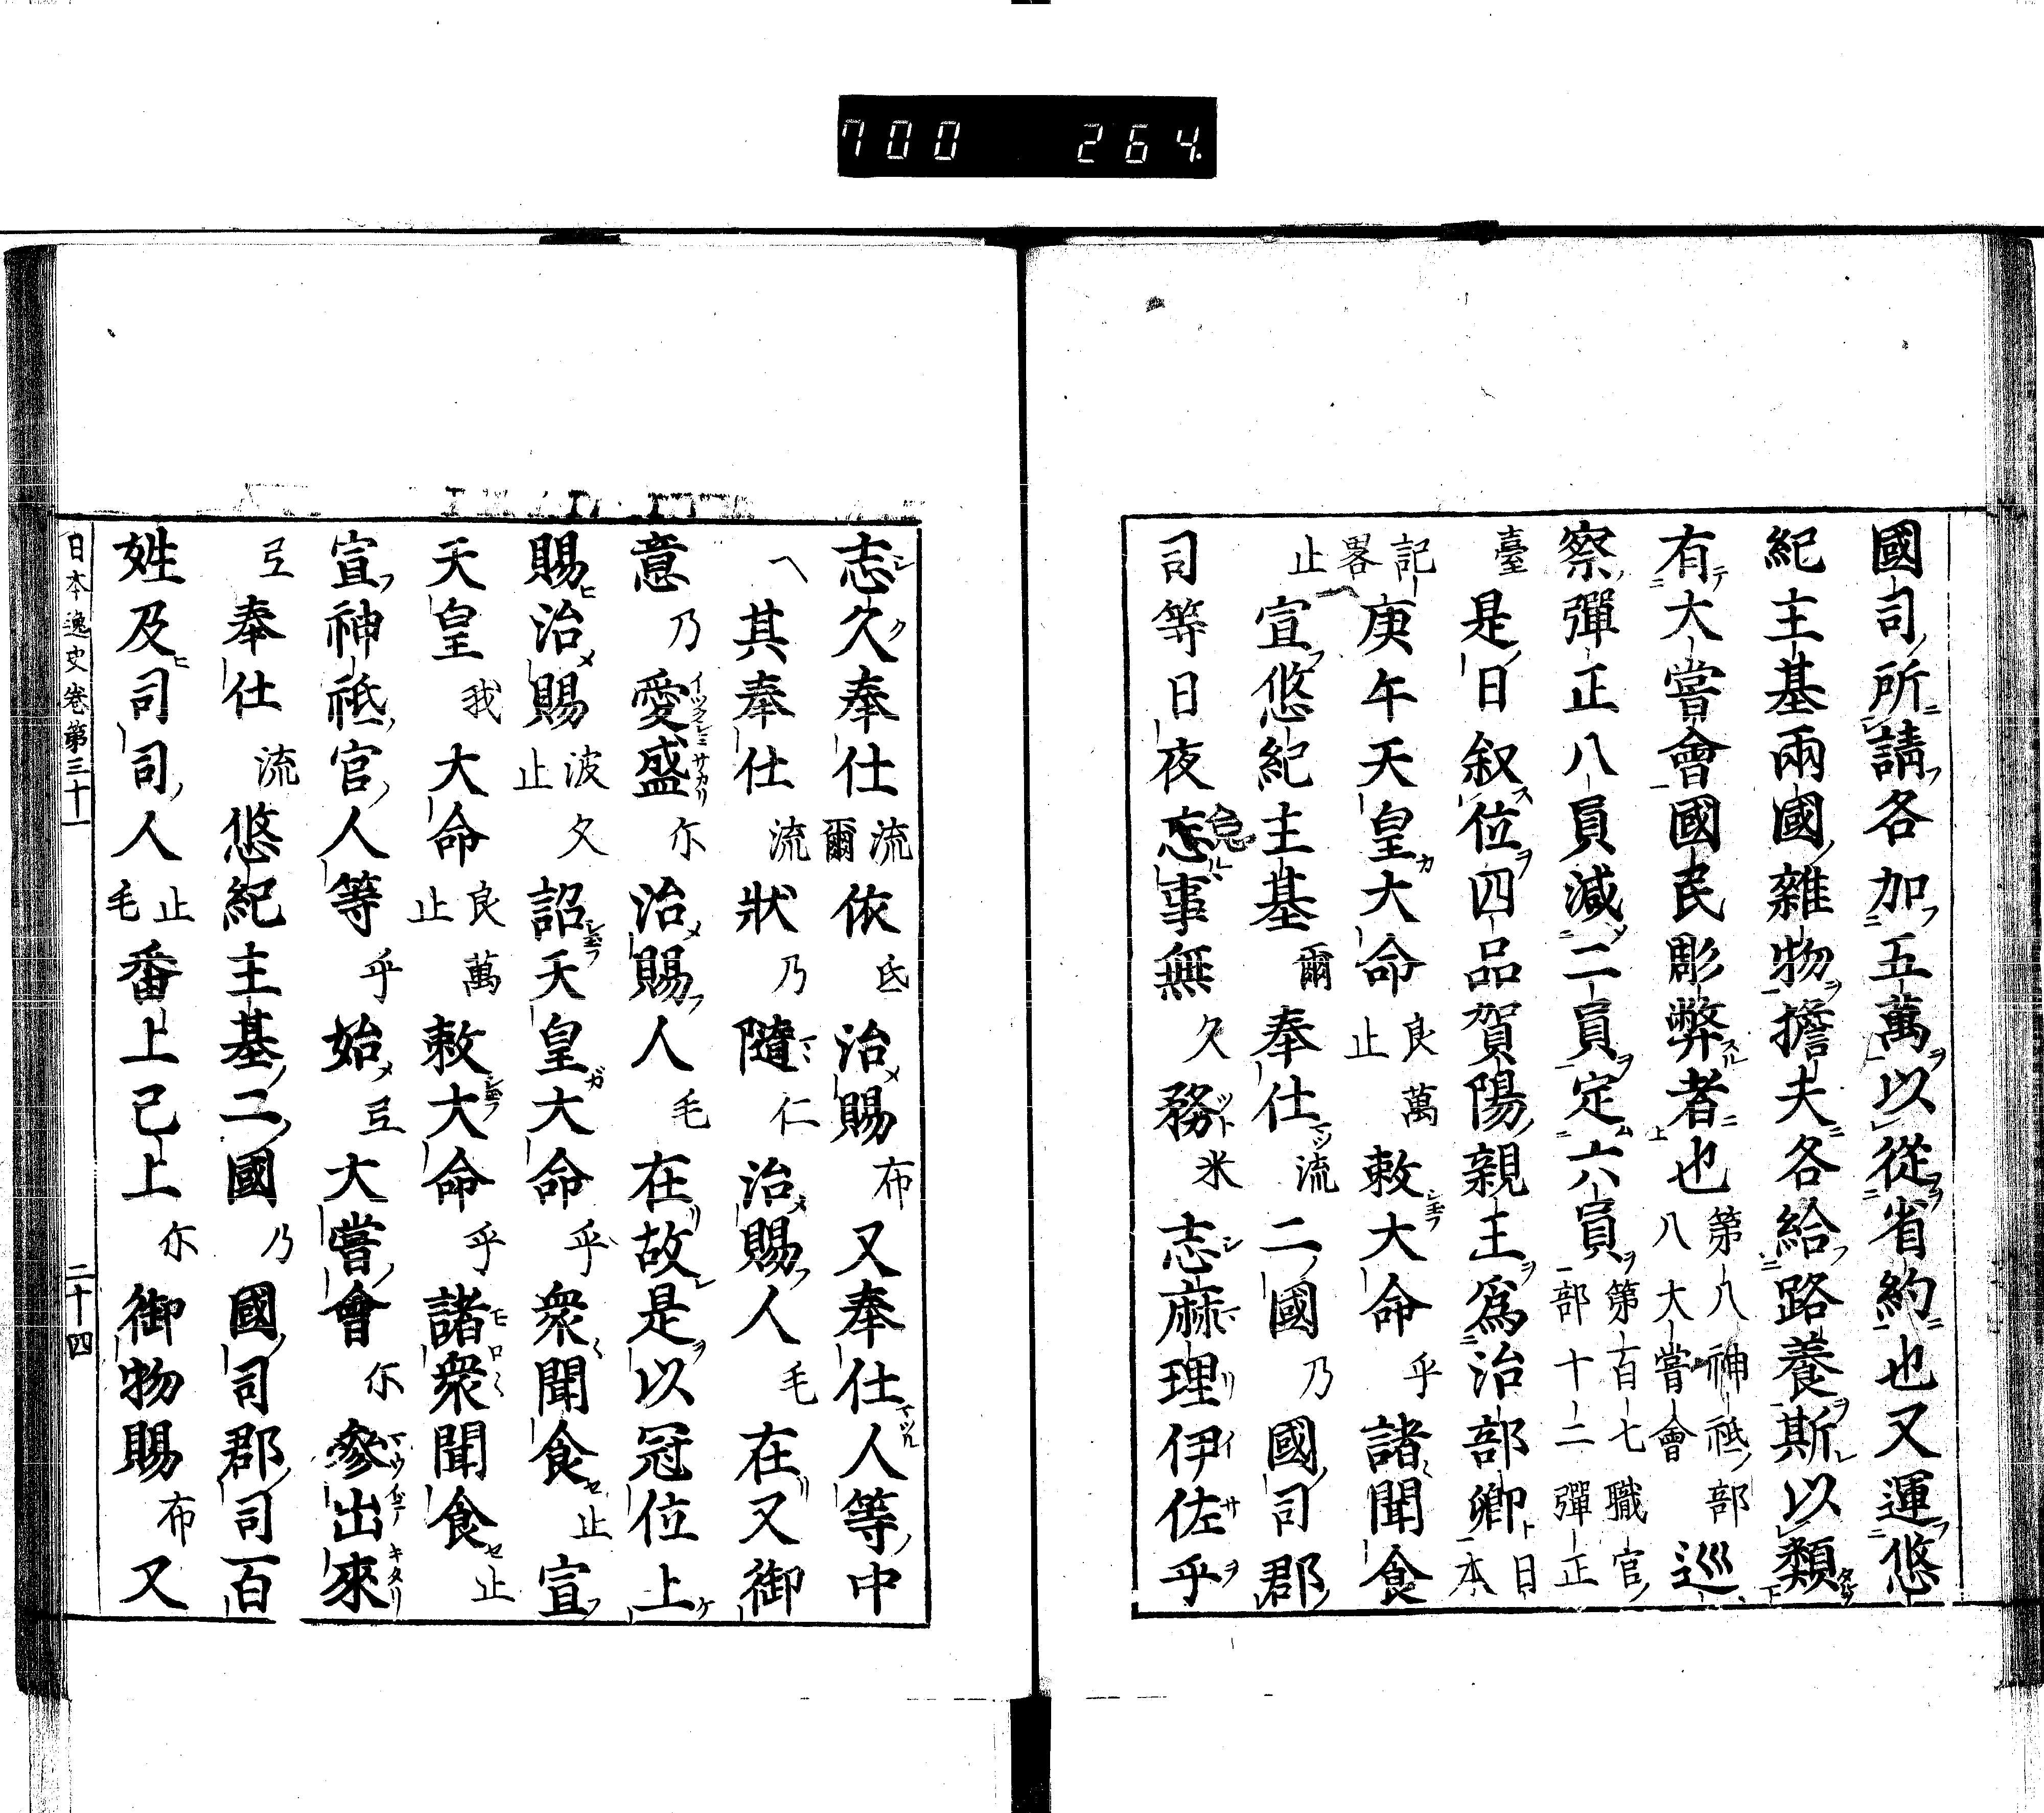 700 264
國司所請各加五萬以從省約也又運悠
紀主基兩國雜物擔夫各給路養斯以類
有大嘗會國民彫弊者也第八神祇部八大嘗會巡
察彈正八員減二員定六員第百七職官部十二彈正
臺是日叙位四品賀陽親王爲治部卿日本
記畧庚午天皇大命良萬止敕大命乎諸聞食
止宣悠紀主基爾奉仕流二國乃國司郡
司等日夜怠事無久務米志麻理伊佐乎
志久奉仕流爾依氐治賜布又奉仕人等中
其奉仕流狀乃隨仁治賜人毛在又御
意乃愛盛尓治賜人毛在故是以冠位上
賜治賜波久止詔天皇大命乎衆聞食止宣
天皇我大命良萬止敕大命乎諸衆聞食止
宣神祇官人等乎始弖大嘗會尓參出來
弖奉仕流悠紀主基二國乃國司郡司百
姓及司司人止毛番上已上尓御物賜布又
日本逸史卷第三十一 二十四